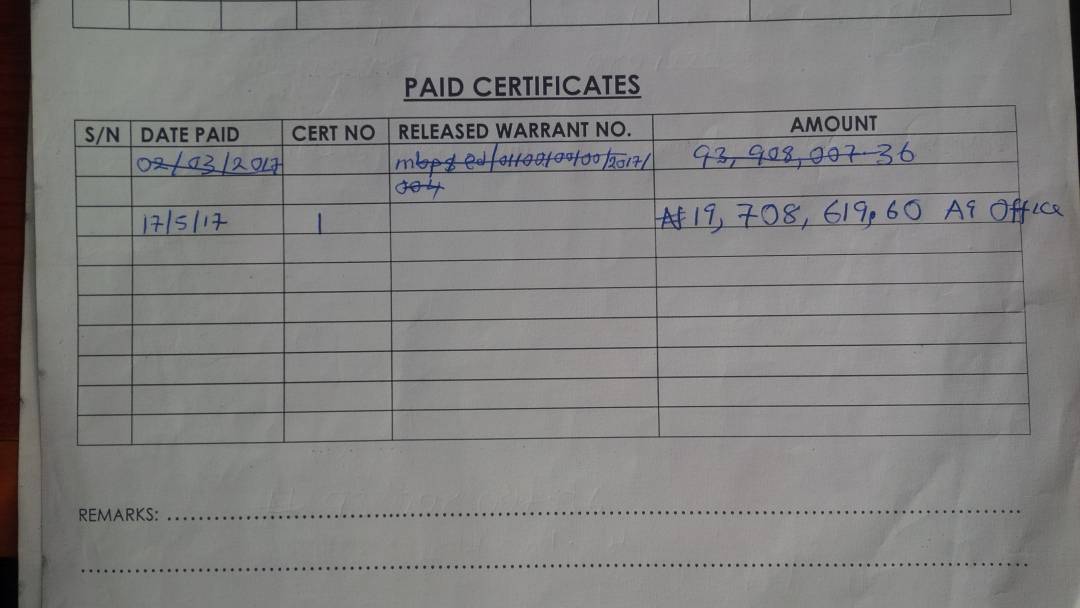 PAID CERTIFICATES
S/N DATE PAID CERT NO RELEASED WARRANT NO. AMOUNT
02/03/2017 mbp& ed/01100100100/2017/ 93,908,007-36
004
17/5/17 1 ₦19,708,619,60 AG Office
REMARKS: